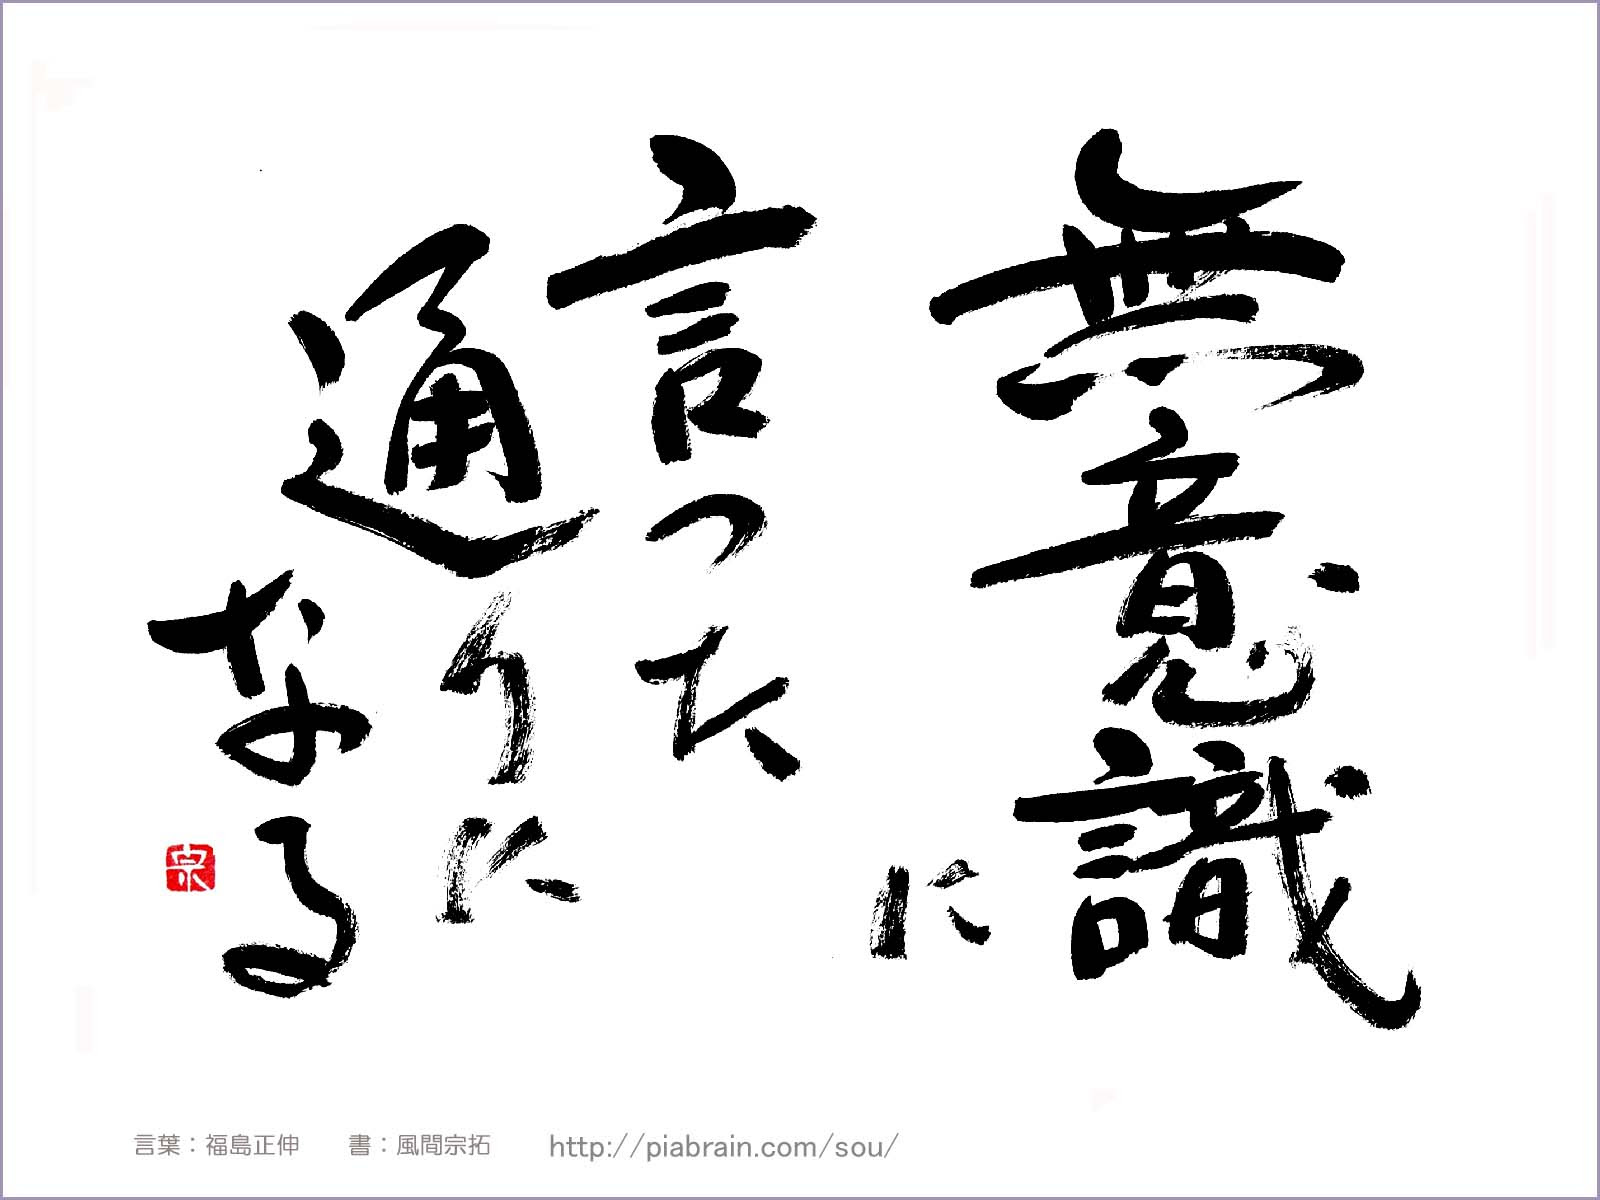 無意識に
言った
通りに
なる
宗
言葉：福島正伸　書：風間宗拓　http://piabrain.com/sou/